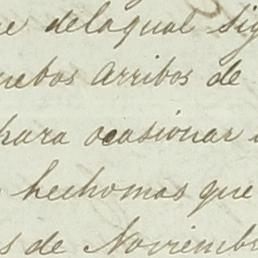 delaqual Sig
nebos arribos de
para ocasionar
hechomas que
s de Noviembr